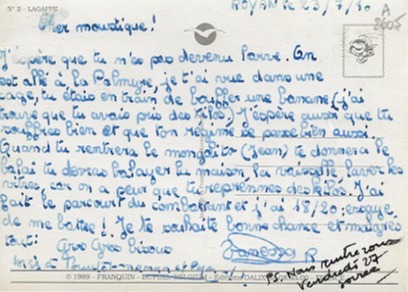 N° 2 - LAGAFFE
ROYAN le 23/7/90
Cher moustique!
J'espère que tu n'es pas devenu larve. On
est allé à la Palmyre, je t'ai vue dans une
cage, tu étais en train de bouffer une banane (j'ai
trouvé que tu avais pris des kilos) J'espère aussi que tu
souffres bien et que ton régime se passe bien aussi.
Quand tu rentreras le mongolito (Jean) te donnera le
balai tu devras balayer la maison, la vaisselle laver les
vitres, car on a peur que tu reprennes des kilos. J'ai
fait le parcours du combattant et j'ai 18/20 essaye
de me battre! Je te souhaite bonne chance et maigris
tout! Gros Gros bisous
Vanessa
PS. Nous rentrerons
Vendredi 27
soirée
© 1989 - FRANQUIN -